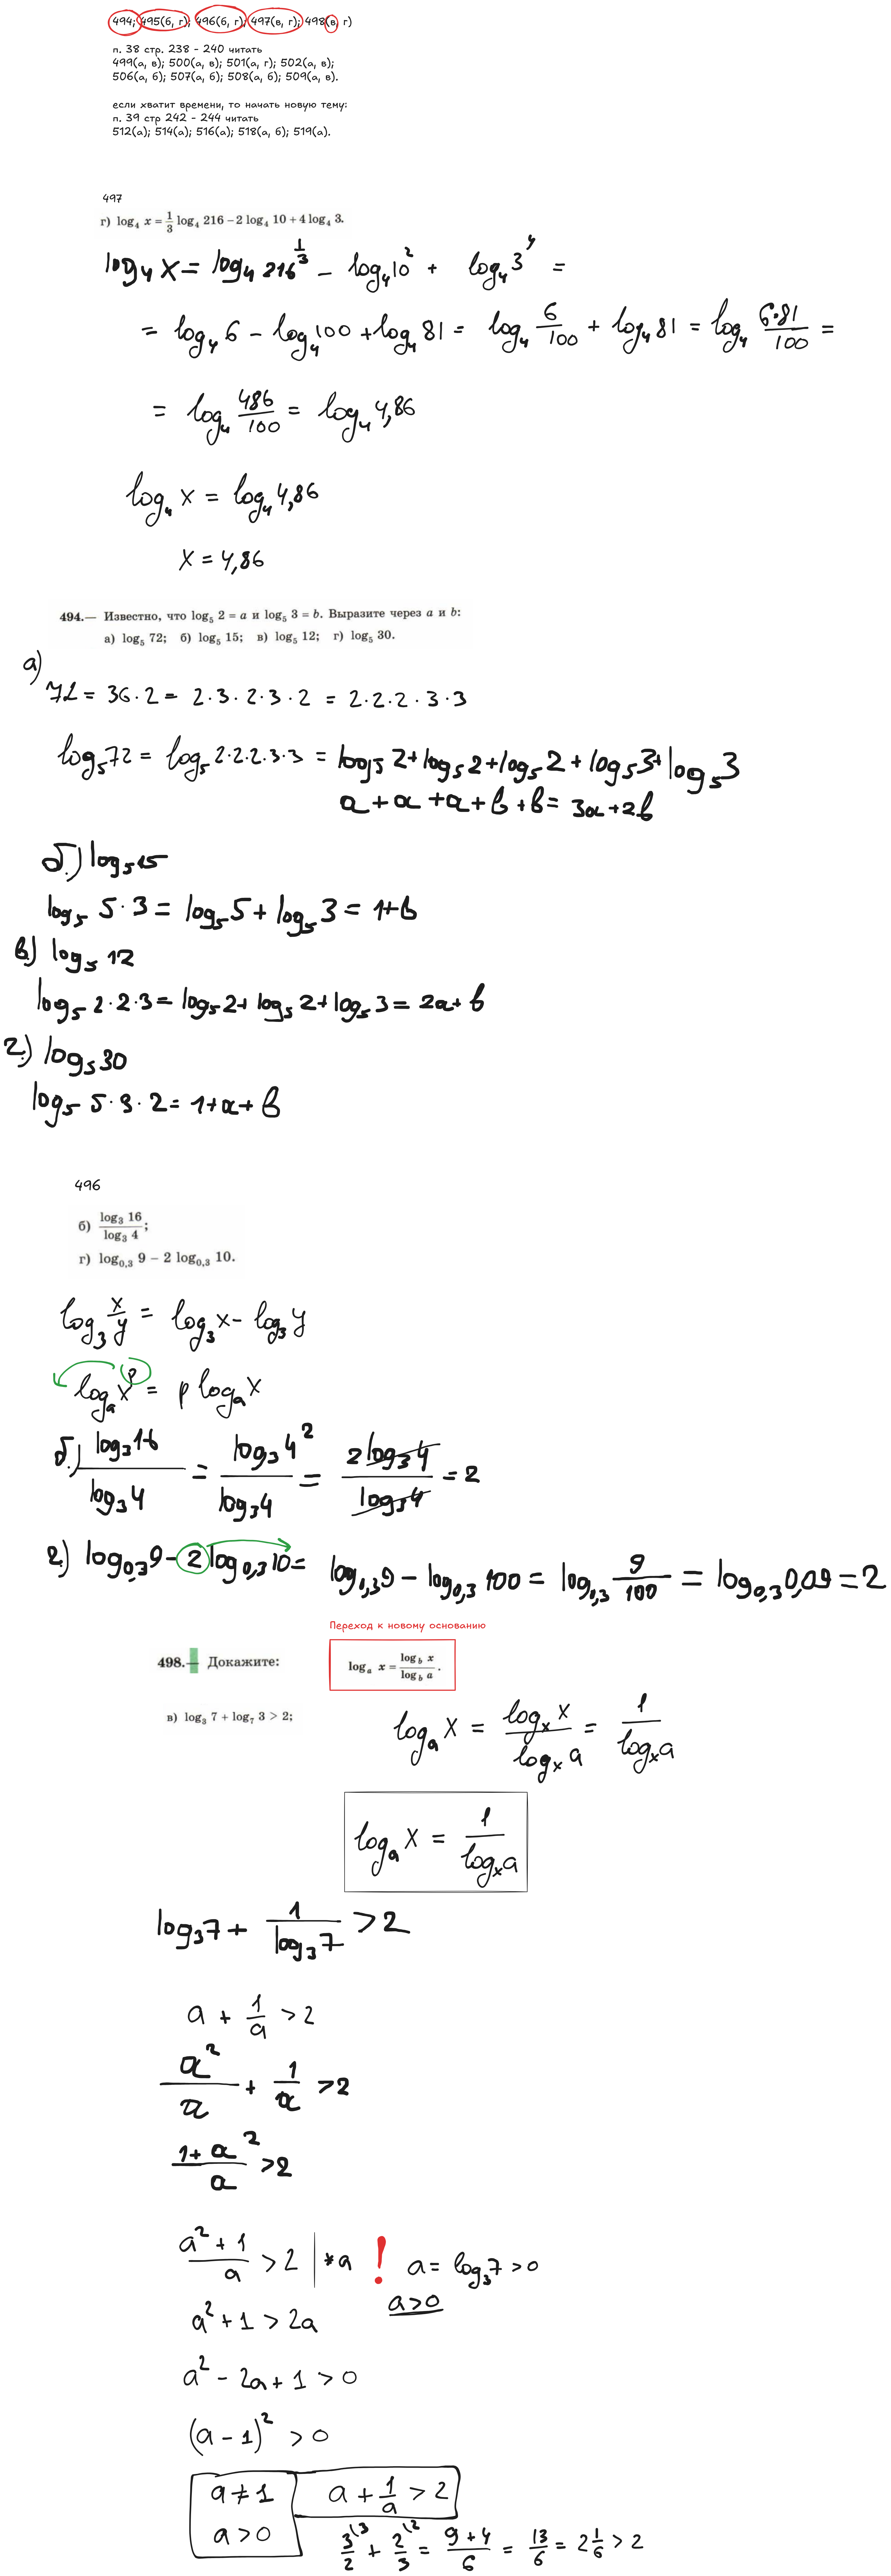 494; 495(б, г); 496(б, г); 497(в, г); 498(в, г)
п. 38 стр. 238 - 240 читать
499(а, в); 500(а, в); 501(а, г); 502(а, в);
506(а, б); 507(а, б); 508(а, б); 509(а, в).
если хватит времени, то начать новую тему:
п. 39 стр 242 - 244 читать
512(а); 514(а); 516(а); 518(а, б); 519(а).
497
г) log₄ x = 1/3 log₄ 216 − 2 log₄ 10 + 4 log₄ 3.
log₄ x = log₄ 216^(1/3) − log₄ 10² + log₄ 3⁴ =
= log₄ 6 − log₄ 100 + log₄ 81 = log₄ 6/100 + log₄ 81 = log₄ (6·81)/100 =
= log₄ 486/100 = log₄ 4,86
log₄ x = log₄ 4,86
x = 4,86
494.— Известно, что log₅ 2 = a и log₅ 3 = b. Выразите через a и b:
а) log₅ 72; б) log₅ 15; в) log₅ 12; г) log₅ 30.
а)
72 = 36 · 2 = 2 · 3 · 2 · 3 · 2 = 2 · 2 · 2 · 3 · 3
log₅ 72 = log₅ 2·2·2·3·3 = log₅ 2 + log₅ 2 + log₅ 2 + log₅ 3 + log₅ 3
a + a + a + b + b = 3a + 2b
б) log₅ 15
log₅ 5 · 3 = log₅ 5 + log₅ 3 = 1 + b
в) log₅ 12
log₅ 2 · 2 · 3 = log₅ 2 + log₅ 2 + log₅ 3 = 2a + b
г) log₅ 30
log₅ 5 · 3 · 2 = 1 + a + b
496
б) log₃ 16 / log₃ 4;
г) log₀,₃ 9 − 2 log₀,₃ 10.
log₃ x/y = log₃ x − log₃ y
logₐ xᵖ = p logₐ x
б) log₃ 16 / log₃ 4 = log₃ 4² / log₃ 4 = 2 log₃ 4 / log₃ 4 = 2
г) log₀,₃ 9 − 2 log₀,₃ 10 = log₀,₃ 9 − log₀,₃ 100 = log₀,₃ 9/100 = log₀,₃ 0,09 = 2
Переход к новому основанию
498.— Докажите:
logₐ x = log_b x / log_b a.
в) log₃ 7 + log₇ 3 > 2;
logₐ x = logₓ x / logₓ a = 1 / logₓ a
logₐ x = 1 / logₓ a
log₃ 7 + 1 / log₃ 7 > 2
a + 1/a > 2
a²/a + 1/a > 2
(1 + a²)/a > 2
(a² + 1)/a > 2 | *a ! a = log₃ 7 > 0
a > 0
a² + 1 > 2a
a² − 2a + 1 > 0
(a − 1)² > 0
a ≠ 1 a + 1/a > 2
a > 0
3/2 ⁽³ + 2/3 ⁽² = (9 + 4)/6 = 13/6 = 2 1/6 > 2